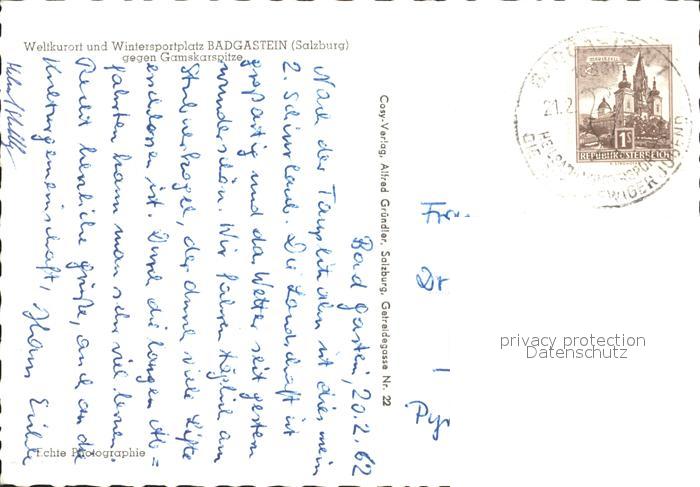 Weltkurort und Wintersportplatz BADGASTEIN (Salzburg)
gegen Gamskarspitze
Bad Gastein, 20.2.62
Nach der Tauplitzalm ist dies mein
2. Schiurlaub. Die Landschaft ist
großartig und das Wetter seit gestern
wunderschön. Wir fahren täglich am
Stubnerkogel, der durch viele Lifte
erschlossen ist. Durch die langen Ab=
fahrten kann man sehr viel lernen.
Recht herzliche Grüße, auch an die
Kulturgemeinschaft, Hans
Echte Photographie
Cosy-Verlag, Alfred Gründler, Salzburg, Getreidegasse Nr. 22
MARIAZELL
1S
REPUBLIK ÖSTERREICH
21.2
EWIGER JUGEND
Fr.
Dr
privacy protection
Datenschutz